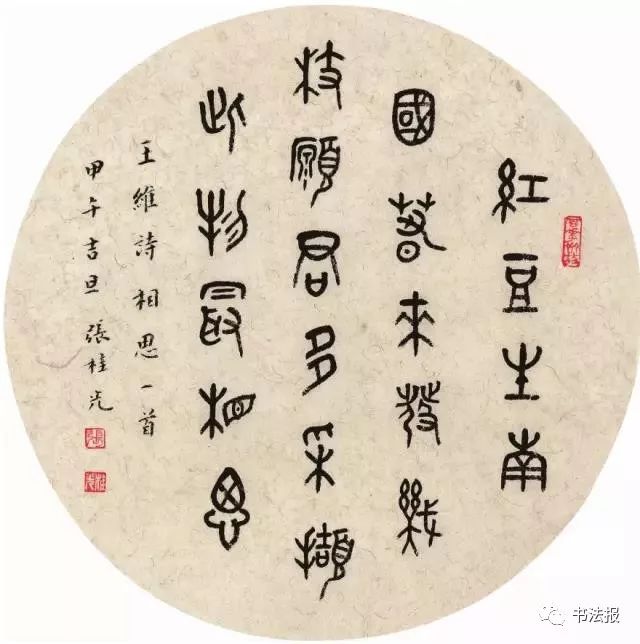 紅豆生南
國春來發幾
枝願君多采擷
此物最相思
王維詩相思一首
甲午吉旦 張桂光
书法报